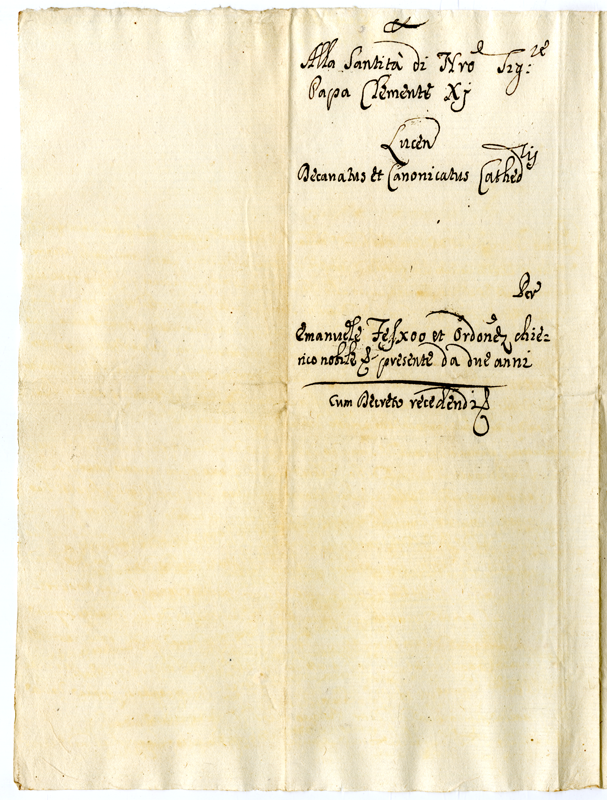 Alla Santità di Nro Sig:re
Papa Clemente XJ
Lucen
Decanatus et Canonicatus Cathedlis
Per
Emanuele Feijoo et Ordonez chie=
rico nobile presente da due anni
Cum Decreto recedendi